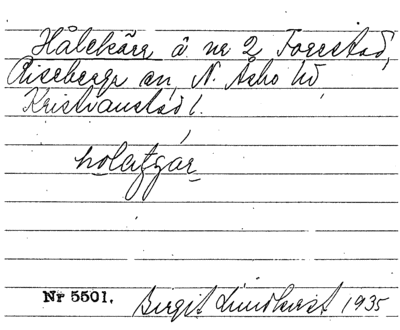 Hålekärr å nr 2 Forestad,
Riseberga sn, N. Åsbo hd
Kristianstad l.
Nr 5501. Birgit Lundkvist 1935